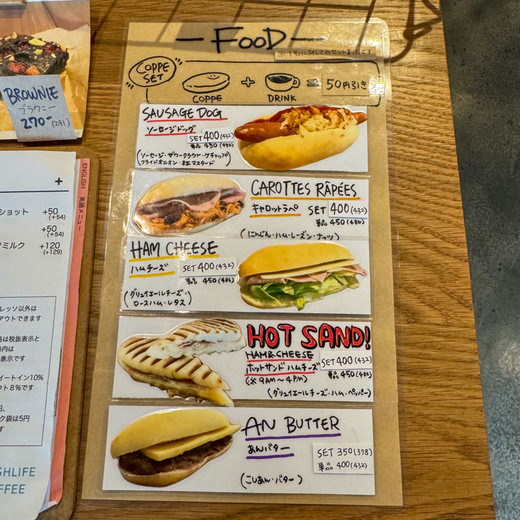 BROWNIE
ブラウニー
270-(291)
ENGLISH
英語メニュー
+
ショット +50
(+54)
+50
(+54)
ミルク +120
(+129)
は税抜表示と
表示です
イートイン10%
ト8%です
袋は5円
— FOOD —
COPPE
SET
COPPE
+
DRINK
=
50円引き
SAUSAGE DOG
ソーセージドッグ
SET 400(432)
単品 450(486)
(ソーセージ・ザワークラウト・ケチャップ
フライドオニオン・粒マスタード)
CAROTTES RÂPÉES
キャロットラペ
SET 400(432)
単品 450(486)
(にんじん・ハム・レーズン・ナッツ)
HAM CHEESE
ハムチーズ
SET 400(432)
単品 450(486)
(グリュイエールチーズ・
ロースハム・レタス)
HOT SAND!
HAM&CHEESE
ホットサンド ハムチーズ
(※ 9AM〜4PM)
SET 400(432)
単品 450(486)
(グリュイエールチーズ・ハム・ペッパー)
AN BUTTER
あんバター
SET 350(378)
単品 400(432)
(こしあん・バター)